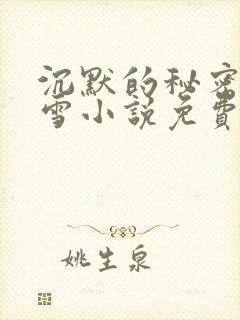 沉默的秘密
雪小说免費
姚生泉